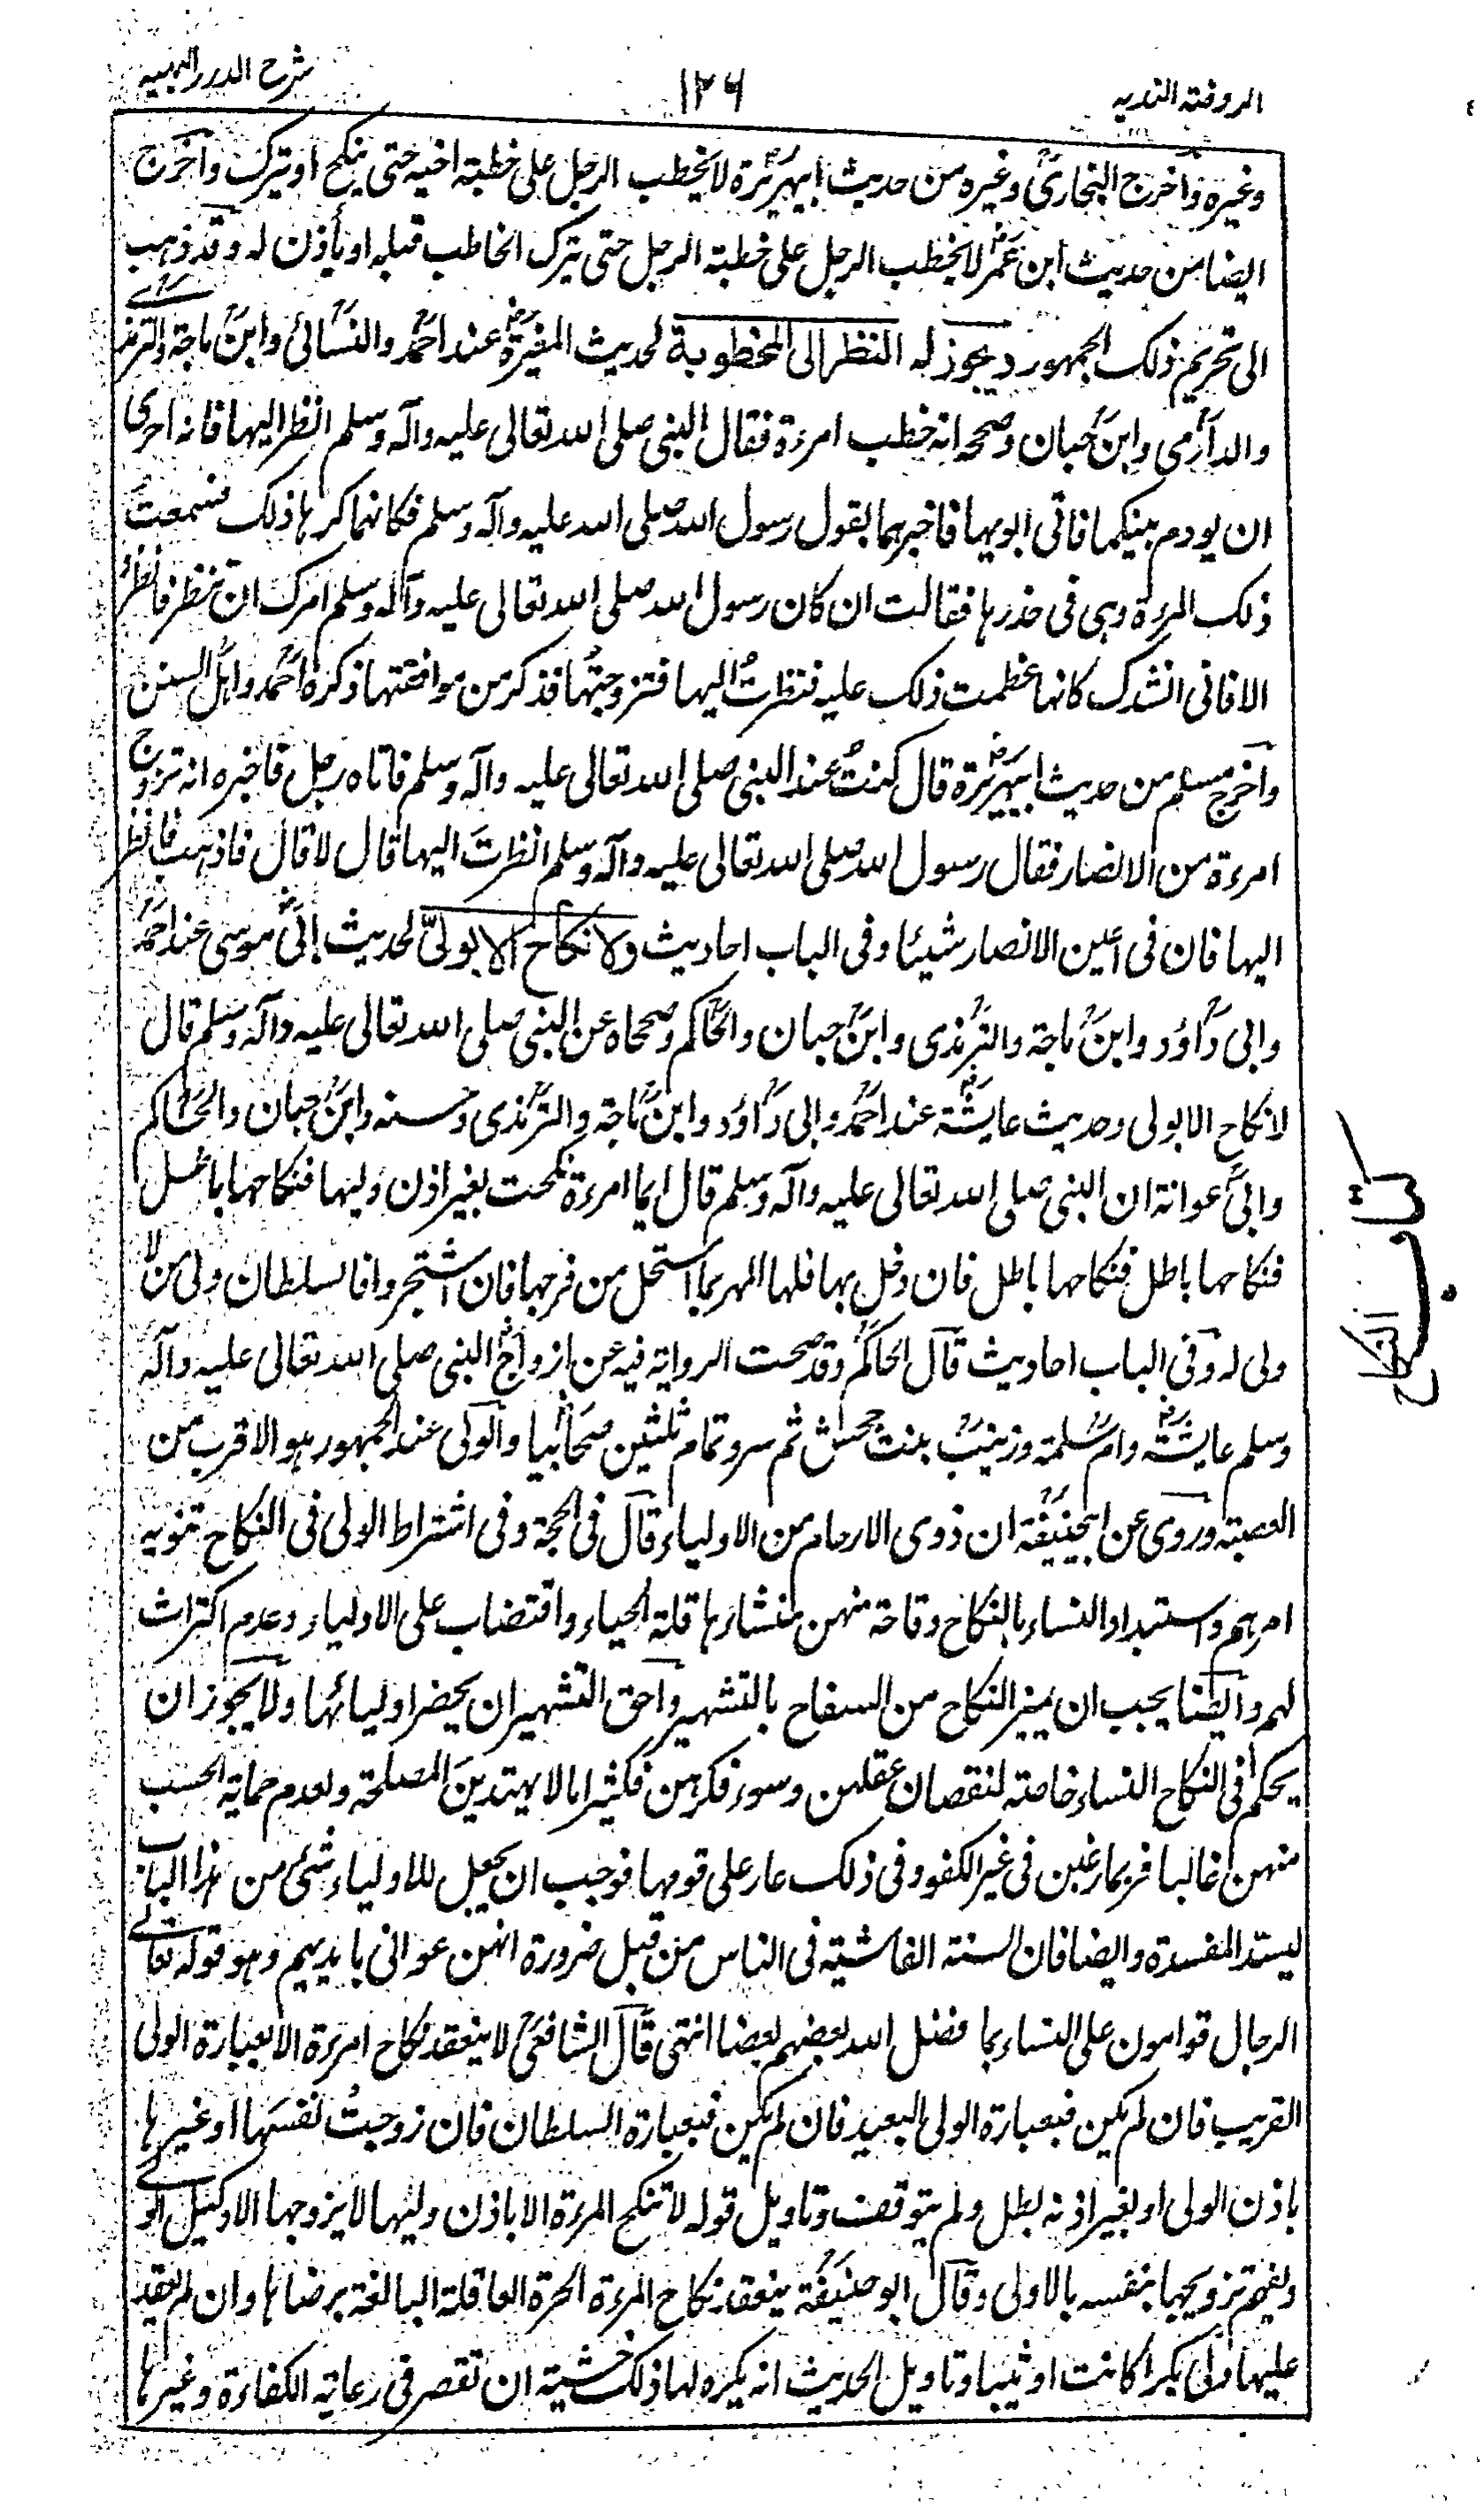 الروضة الندیه
۱۲۶
شرح الدرر البهیه
وغیره وآخرج البخاریؒ وغیره من حدیث ابیهریرۃؓ لا یخطب الرجل علی خطبة اخیه حتی ینکح او یترک وآخرج
ایضا من حدیث ابن عمرؓ لا یخطب الرجل علی خطبة الرجل حتی یترک الخاطب قبله او یأذن له وقد ذهب
الی تحریم ذلک الجمهور ویجوز له النظر الی المخطوبة لحدیث المغیرۃؓ عند احمد والنسائی وابن ماجة والترمذی
والدارمی وابن حبان وصححه انه خطب امرءة فقال النبی صلی الله تعالی علیه وآله وسلم انظر الیها فانه احری
ان یودم بینکما فاتی ابویها فاخبرهما بقول رسول الله صلی الله علیه وآله وسلم فکانهما کرها ذلک فسمعت
ذلک المرءة وهی فی خدرها فقالت ان کان رسول الله صلی الله تعالی علیه وآله وسلم امرک ان تنظر فانظر
الا فانی انشدک کانها عظمت ذلک علیه فنظرتُ الیها فتزوجتُها فذکر من موافقتها ذکره احمد واهل السنن
وآخرج مسلم من حدیث ابیهریرۃؓ قال کنتُ عند النبی صلی الله تعالی علیه وآله وسلم فاتاه رجل فاخبره انه تزوج
امرءة من الانصار فقال رسول الله صلی الله تعالی علیه وآله وسلم انظرتَ الیها قال لا قال فاذهب فانظر
الیها فان فی اعین الانصار شیئا وفی الباب احادیث ولا نکاح الا بولیّ لحدیث ابی موسی عند احمد
وابی داؤد وابن ماجة والترمذی وابن حبان والحاکم وصححاه عن النبی صلی الله تعالی علیه وآله وسلم قال
لا نکاح الا بولی وحدیث عایشةؓ عند احمد وابی داؤد وابن ماجة والترمذی وحسنه وابن حبان والحاکم
وابی عوانة ان النبی صلی الله تعالی علیه وآله وسلم قال ایما امرءة نکحت بغیر اذن ولیها فنکاحها باطل
فنکاحها باطل فنکاحها باطل فان دخل بها فلها المهر بما استحل من فرجها فان اشتجروا فالسلطان ولی من لا
ولی له وفی الباب احادیث قال الحاکم وقد صحت الروایة فیه عن ازواج النبی صلی الله تعالی علیه وآله
وسلم عایشةؓ وام سلمة وزینب بنت جحش ثم سرد تمام ثلثین صحابیا والولی عند الجمهور هو الاقرب من
العصبة وروی عن ابیحنیفة ان ذوی الارحام من الاولیاء قال فی الحجة وفی اشتراط الولی فی النکاح تنویه
امرهم واستبداد النساء بالنکاح وقاحة منهن منشاءها قلة الحیاء واقتضاب علی الاولیاء وعدم اکتراث
لهم وایضا یجب ان یمیز النکاح من السفاح بالتشهیر واحق التشهیر ان یحضر اولیائها ولا یجوز ان
یحکم فی النکاح النساء خاصة لنقصان عقلهن وسوء فکرهن فکثیرا ما لا یهتدین المصلحة ولعدم حمایة الحسب
منهن غالبا فربما رغبن فی غیر الکفو وفی ذلک عار علی قومها فوجب ان یجعل للاولیاء شئ من هذا الباب
لیسد المفسدة وایضا فان السنة الفاشیة فی الناس من قبل ضرورة انهن عوانی بایدیهم وهو قوله تعالی
الرجال قوامون علی النساء بما فضل الله بعضهم بعضا انتهی قال الشافعیؒ لا ینعقد نکاح امرءة الا بعبارة الولی
القریب فان لم یکن فبعبارة الولی البعید فان لم یکن فبعبارة السلطان فان زوجتْ نفسَها او غیرها
باذن الولی او بغیر اذنه بطل ولم یتوقف وتاویل قوله لا تنکح المرءة الا باذن ولیها لا یزوجها الا وکیل الولی
ویفهم تزویجها بنفسه بالاولی وقال ابو حنیفة ینعقد نکاح المرءة الحرة العاقلة البالغة برضاها وان لم یعقد
علیها ولی بکرا کانت او ثیبا وتاویل الحدیث انه یکره لها ذلک خشیة ان تقصر فی رعایة الکفاءة وغیرها
کتاب النکاح